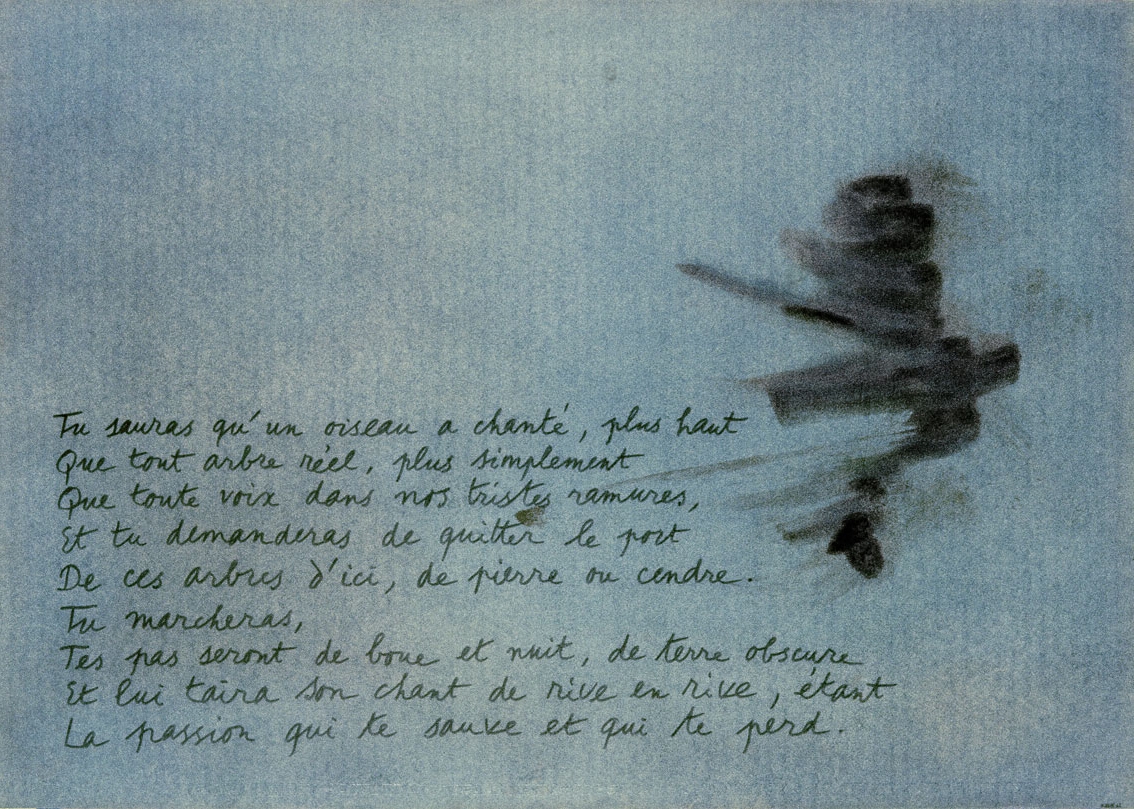 Tu sauras qu'un oiseau a chanté, plus haut
Que tout arbre réel, plus simplement
Que toute voix dans nos tristes ramures,
Et tu demanderas de quitter le port
De ces arbres d'ici, de pierre ou cendre.
Tu marcheras,
Tes pas seront de boue et nuit, de terre obscure
Et lui taira son chant de rive en rive, étant
La passion qui te sauve et qui te perd.